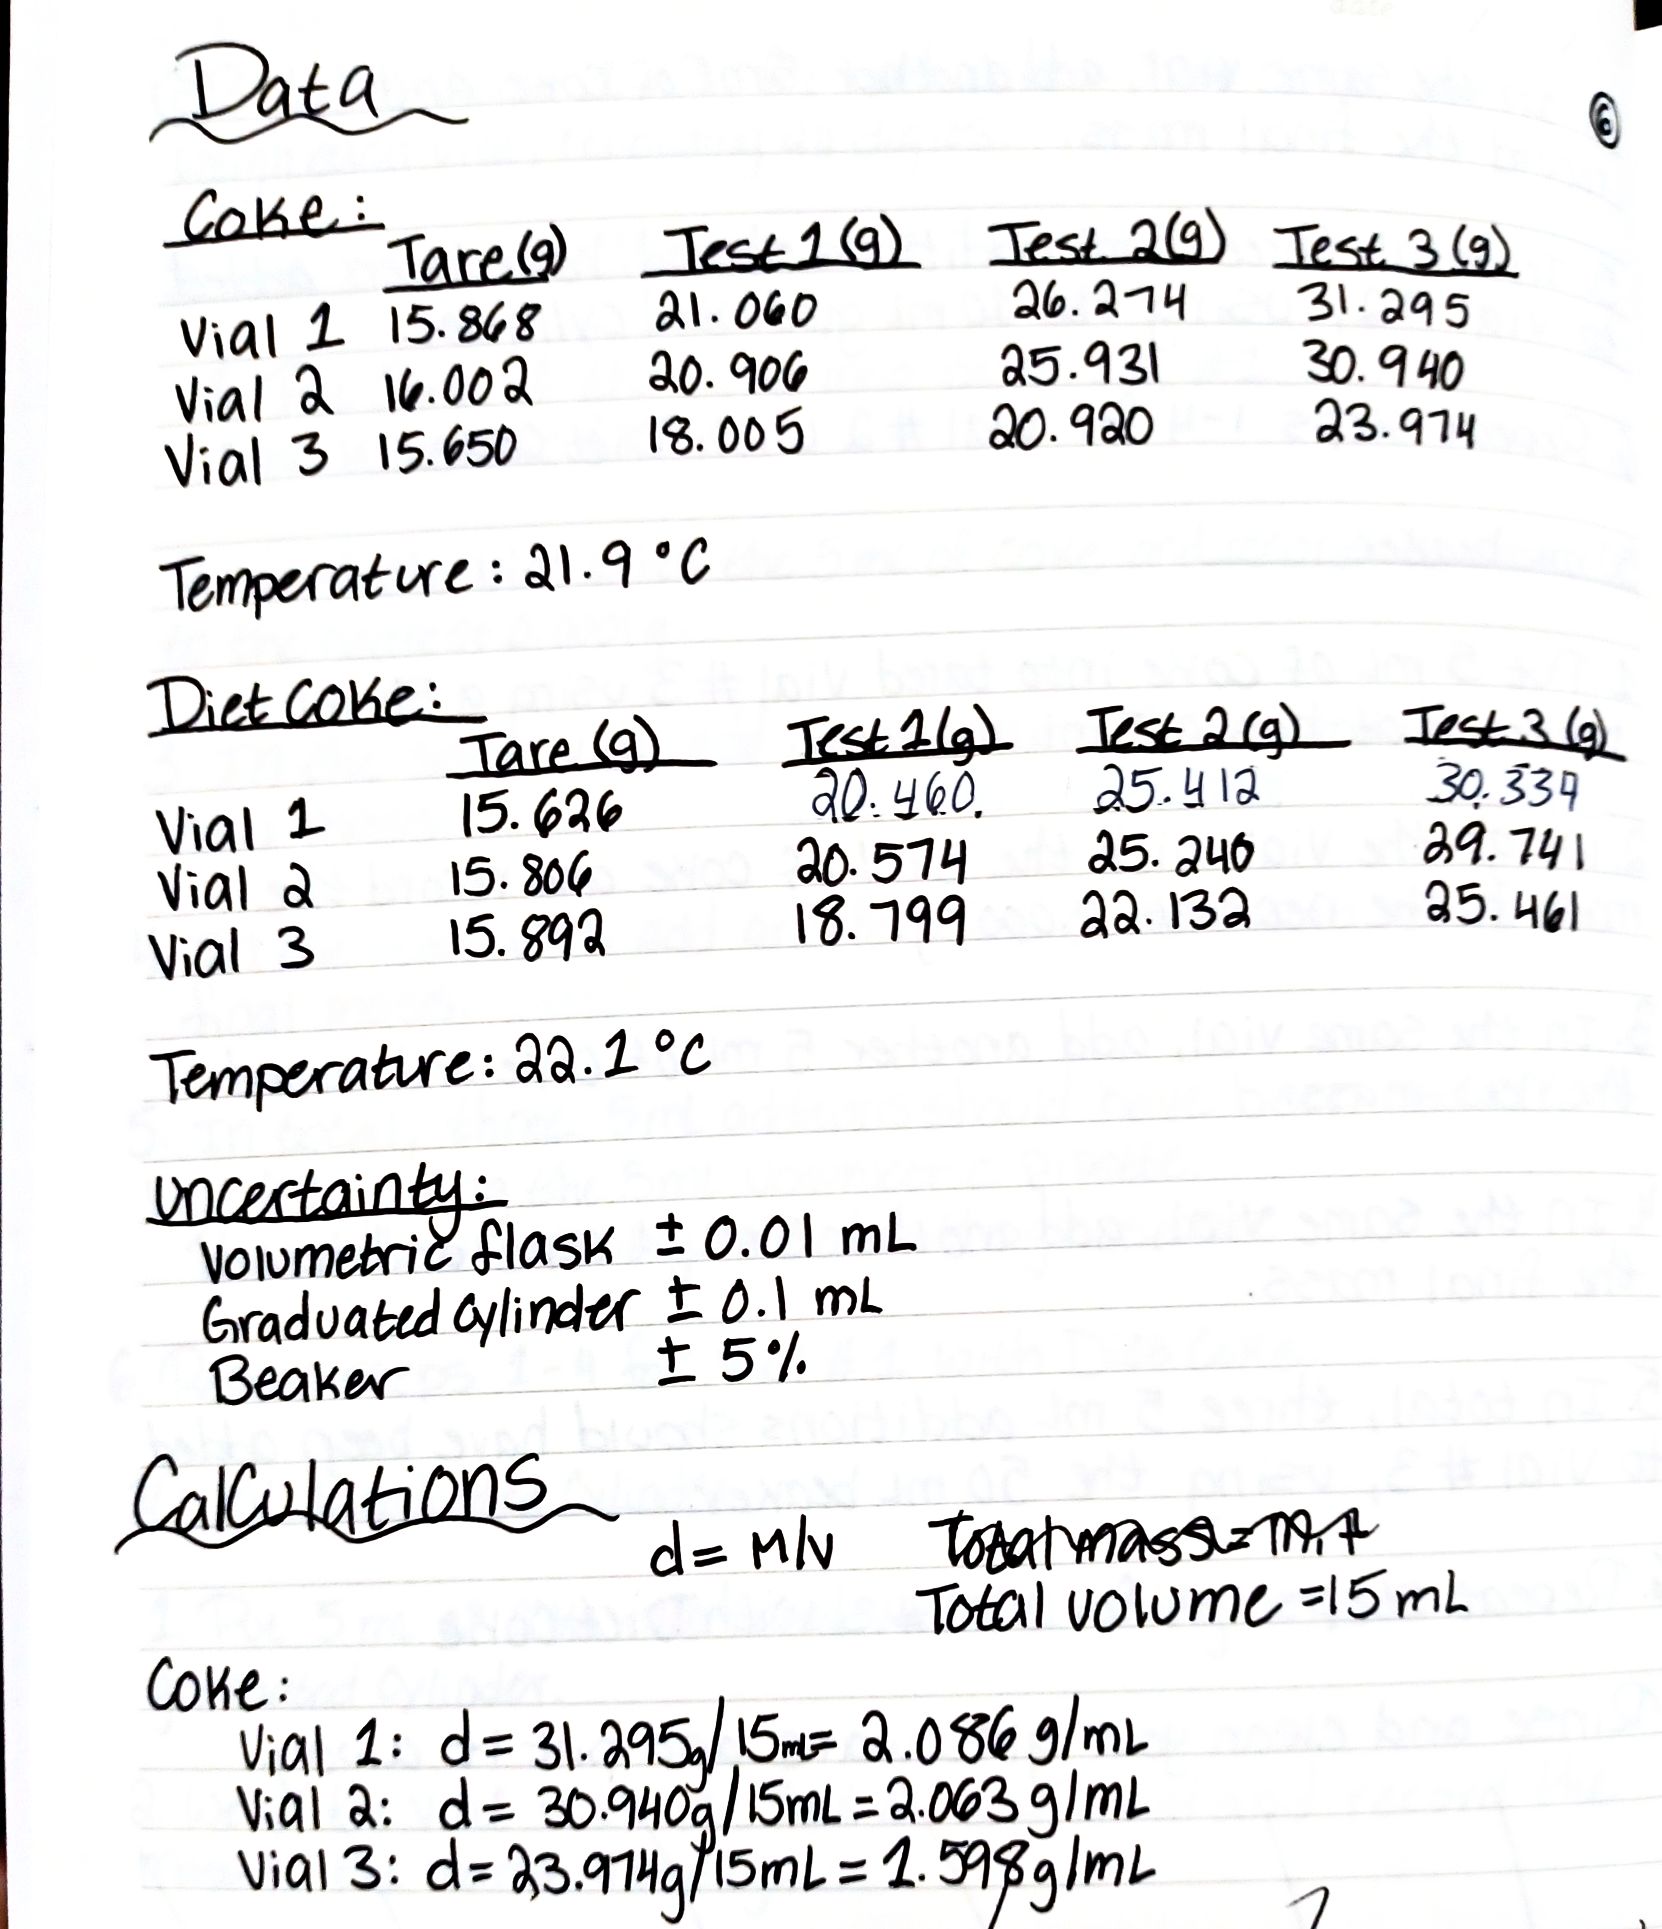 Data
6
Coke:
Tare (g) Test 1 (g) Test 2 (g) Test 3 (g)
Vial 1 15.868 21.060 26.274 31.295
Vial 2 16.002 20.906 25.931 30.940
Vial 3 15.650 18.005 20.920 23.974
Temperature: 21.9 °C
Diet Coke:
Tare (g) Test 1 (g) Test 2 (g) Test 3 (g)
Vial 1 15.626 20.460 25.412 30.339
Vial 2 15.806 20.574 25.240 29.741
Vial 3 15.892 18.799 22.132 25.461
Temperature: 22.1 °C
Uncertainty:
Volumetric flask ± 0.01 mL
Graduated cylinder ± 0.1 mL
Beaker ± 5%
Calculations
d = M/V Total mass =
Total volume = 15 mL
Coke:
Vial 1: d = 31.295g/15mL = 2.086 g/mL
Vial 2: d = 30.940g/15mL = 2.063 g/mL
Vial 3: d = 23.974g/15mL = 1.598 g/mL